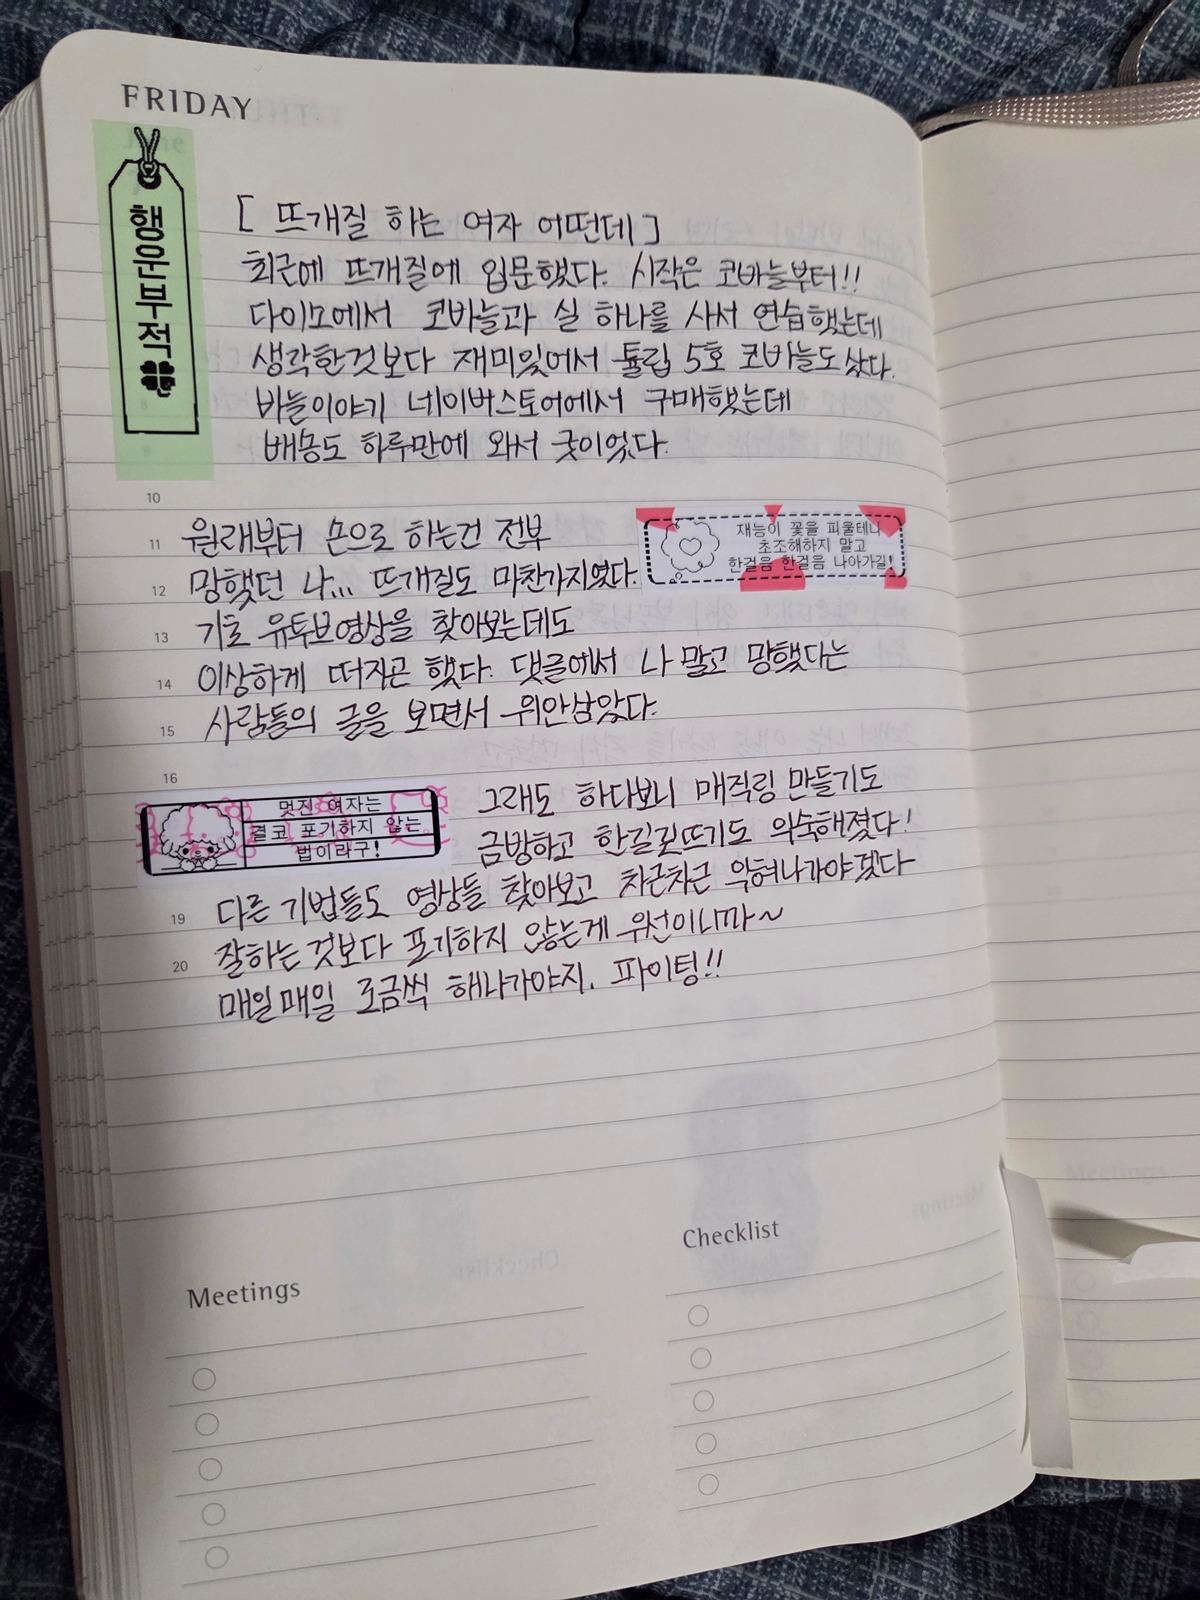 FRIDAY
행운부적
[ 뜨개질 하는 여자 어떤데 ]
최근에 뜨개질에 입문했다. 시작은 코바늘부터!!
다이소에서 코바늘과 실 하나를 사서 연습했는데
생각한것보다 재미있어서 튤립 5호 코바늘도 샀다.
바늘이야기 네이버스토어에서 구매했는데
배송도 하루만에 와서 굿이었다.
8
9
10
11 원래부터 손으로 하는건 전부
재능이 꽃을 피울테니
초조해하지 말고
한걸음 한걸음 나아가길!
12 망했던 나... 뜨개질도 마찬가지였다.
13 기초 유튜브영상을 찾아보는데도
14 이상하게 떠지곤 했다. 댓글에서 나 말고 망했다는
15 사람들의 글을 보면서 위안삼았다.
16
그래도 하다보니 매직링 만들기도
멋진 여자는
결코 포기하지 않는
법이라구!
금방하고 한길긴뜨기도 익숙해졌다!
19 다른 기법들도 영상들 찾아보고 차근차근 익혀나가야겠다
20 잘하는 것보다 포기하지 않는게 우선이니까~
매일매일 조금씩 해나가야지. 파이팅!!
Meetings
Checklist
Meetings